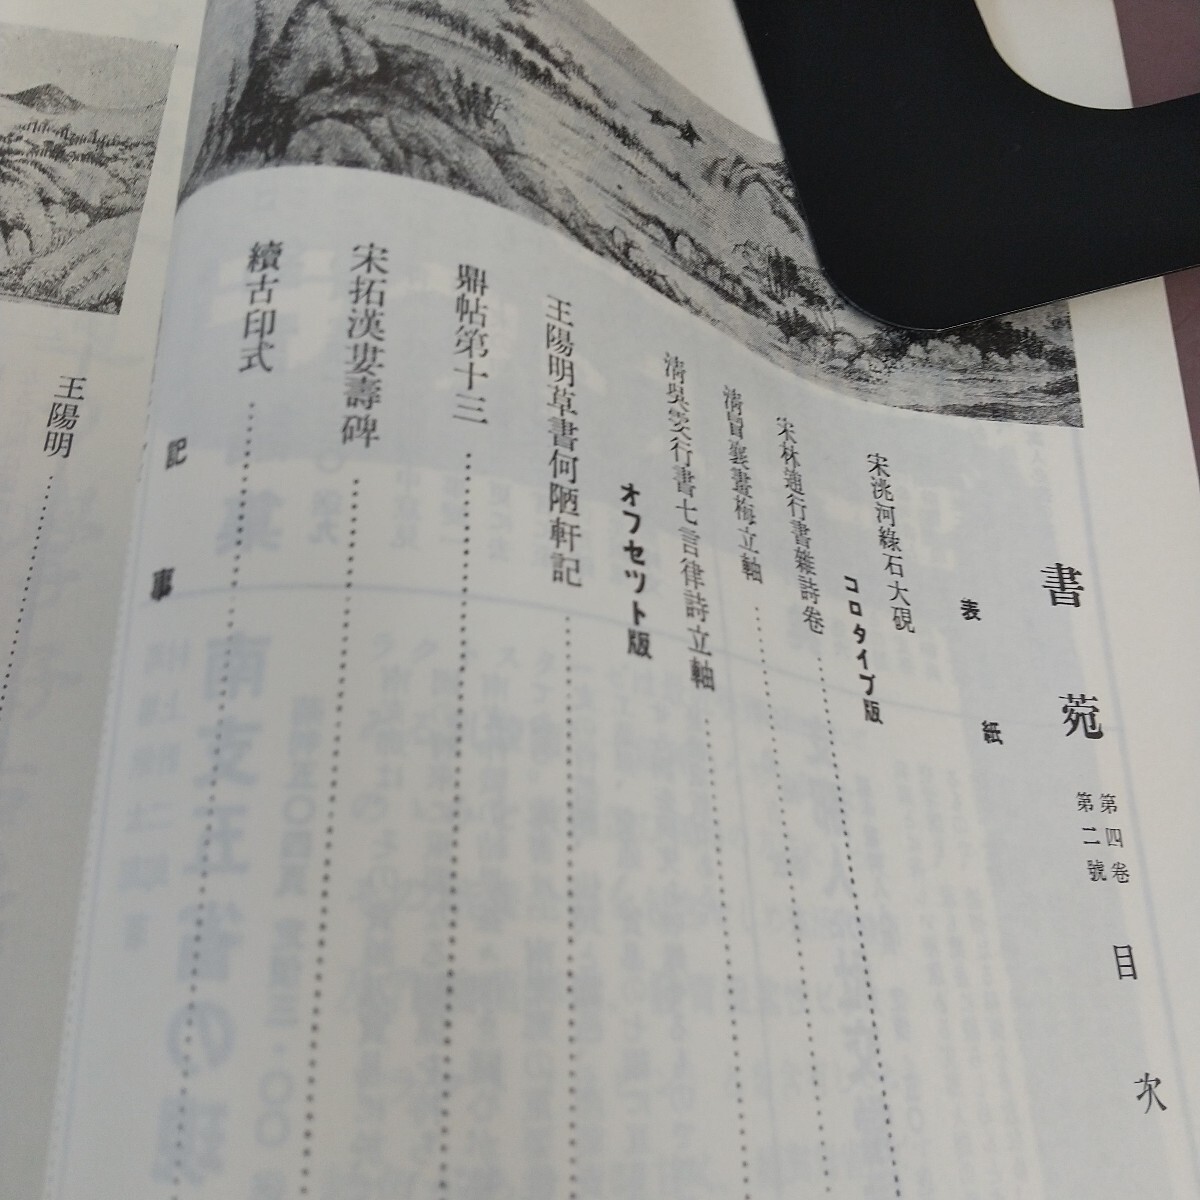 書苑 第四卷 第二號 目次
表紙
宋洮河綠石大硯
コロタイプ版
宋林逋行書雜詩卷
清冒襄畫梅立軸
清吳雲行書七言律詩立軸
オフセツト版
王陽明草書何陋軒記
鼎帖第十三
宋拓漢婁壽碑
續古印式
記事
王陽明